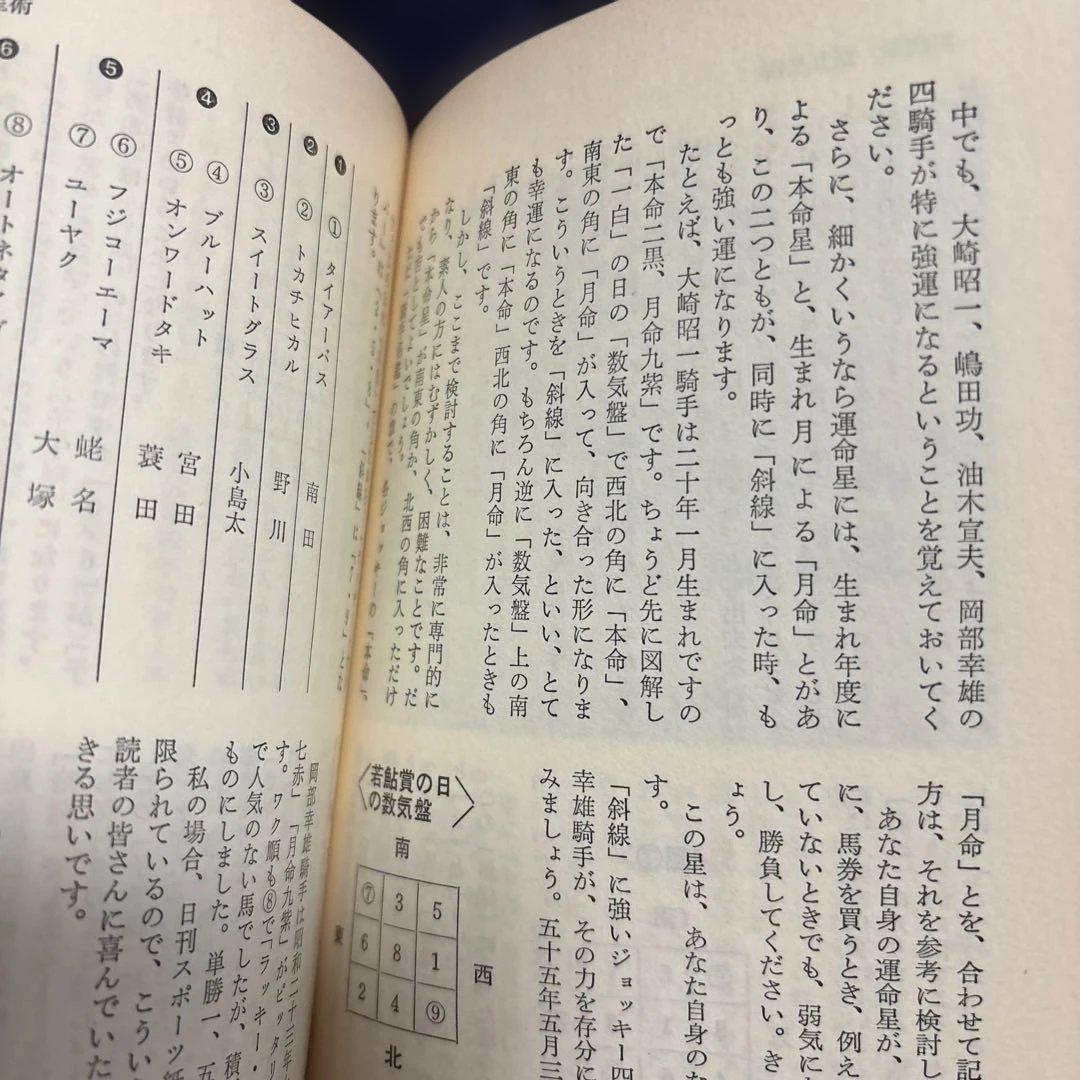 中でも、大崎昭一、嶋田功、油木宣夫、岡部幸雄の
四騎手が特に強運になるということを覚えておいてく
ださい。
さらに、細かくいうなら運命星には、生まれ年度に
よる「本命星」と、生まれ月による「月命」とがあ
り、この二つともが、同時に「斜線」に入った時、も
っとも強い運になります。
たとえば、大崎昭一騎手は二十年一月生まれですの
で「本命二黒、月命九紫」です。ちょうど先に図解し
た「一白」の日の「数気盤」で西北の角に「本命」、
南東の角に「月命」が入って、向き合った形になりま
す。こういうときを「斜線」に入った、といい、とて
も幸運になるのです。もちろん逆に「数気盤」上の南
東の角に「本命」西北の角に「月命」が入ったときも
「斜線」です。
しかし、ここまで検討することは、非常に専門的に
なり、素人の方にはむずかしく、困難なことです。だ
から「本命星」が南東の角か、北西の角に入っただけ
でも
としてよいでしょう。
ります。
「月命」とを、合わせて記
方は、それを参考に検討し
あなた自身の運命星が、
に、馬券を買うとき、例え
ていないときでも、弱気に
し、勝負してください。き
ょう。
この星は、あなた自身の
す。
「斜線」に強いジョッキー四
幸雄騎手が、その力を存分に
みましょう。五十五年五月三
〈若鮎賞の日
の数気盤〉
南
⑦ 3 5
東 6 8 1 西
2 4 ⑨
北
岡部幸雄騎手は昭和二十三年
七赤」「月命九紫」がピッタリ
す。ワク順も⑧で「ラッキー・
で人気のない馬でしたが、積
ものにしました。単勝一、五
私の場合、日刊スポーツ紙
限られているので、こうい
読者の皆さんに喜んでいた
きる思いです。
術
❶ ① タイアーバス 南田
❷ ② トカチヒカル 野川
❸ ③ スイートグラス 小島太
❹ ④ ブルーハット 宮田
⑤ オンワードタキ 蓑田
❺ ⑥ フジコーエーマ 蛯名
⑦ ユーヤク 大塚
❻ ⑧ オートネ